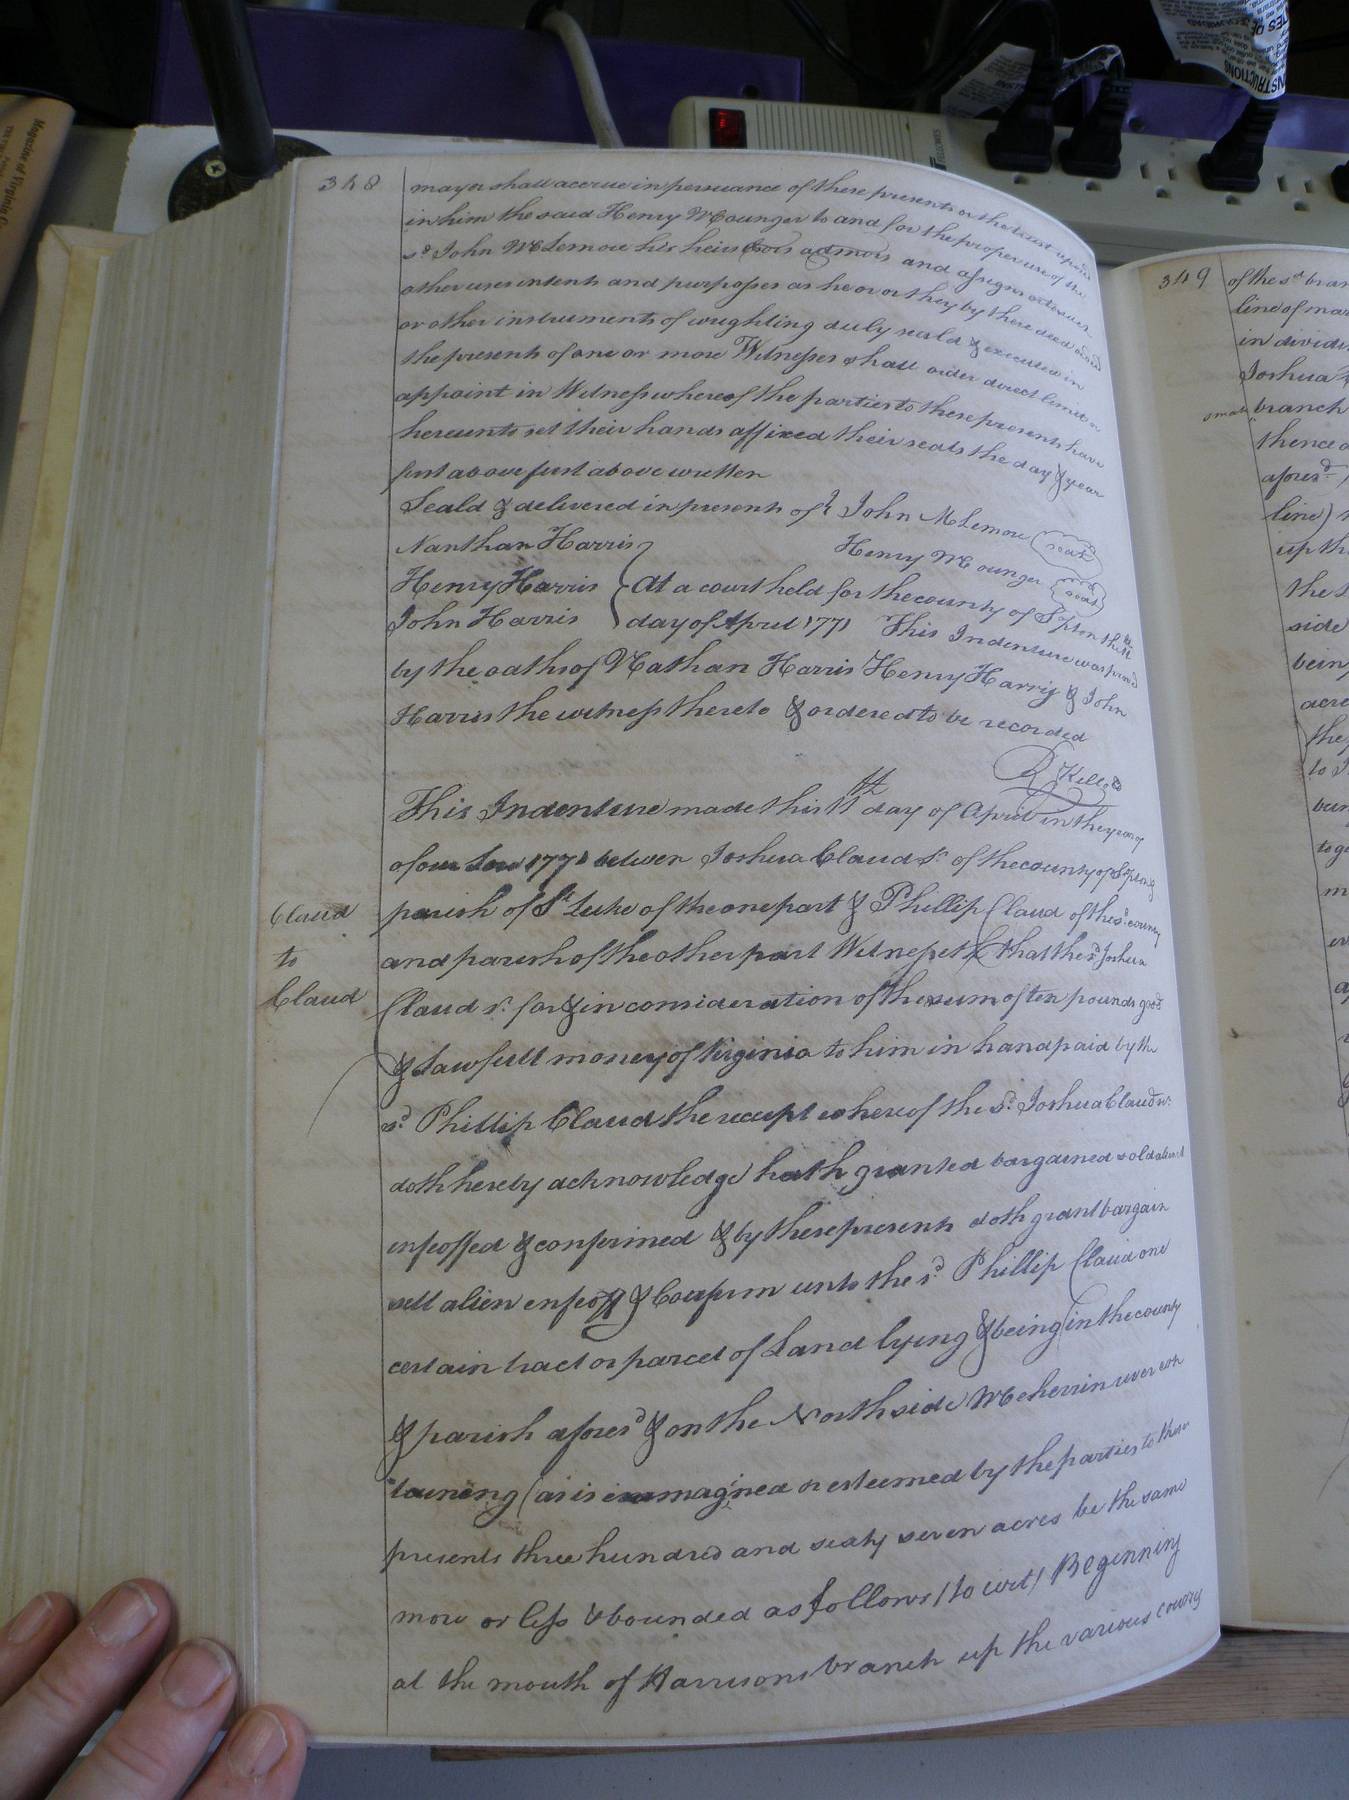 348
may or shall accrue in persuance of these presents or the trust
in him the said Henry McOunger to and for the proper use of the
sd John McLemore his heirs Exors admors and assigns or
other uses intents and purposses as he or or they by there deed
or other instruments of wrighting duly seald & executed in
the presents of one or more Witnesses shall order direct limit or
appoint in Witness whereof the parties to these presents have
hereunto set their hands affixed their seals the day & year
first above first above written
Seald & delivered in presents of John McLemore seal
Nanthan Harris Henry McOunger seal
Henry Harris At a court held for the county of Sºpton the
John Harris day of April 1771 This Indenture was
by the oaths of Nathan Harris Henry Harris & John
Harris the witness thereto & ordered to be recorded
R Kello
This Indenture made this 11th day of April in the year of
of our Lord 1771 between Joshua Claud sr of the county of
Claud
parish of St Luke of the one part & Phillip Claud of the sd county
to
and parish of the other part Witnesseth that the sd Joshua
Claud
Claud sr for & in consideration of the sum of ten pounds good
& Lawfull money of Virginia to him in hand paid by the
sd Phillip Claud the receipt whereof the sd Joshua Claud sr
doth hereby acknowledge hath granted bargained sold
infeoffed & confirmed & by these presents doth grant bargain
sell alien enfeoff & Confirm unto the sd Phillip Claud one
certain tract or parcel of Land lying & being in the county
& parish aforesd & on the North side Meherrin river con
taining (as is immagined or esteemed by the parties to these
presents three hundred and sixty seven acres be the same
more or less & bounded as follows (to wit) Beginning
at the mouth of Harrisons branch up the various
349
of the sd
line of
in
Joshua
small branch
thence
aforesd
line)
up
the
side